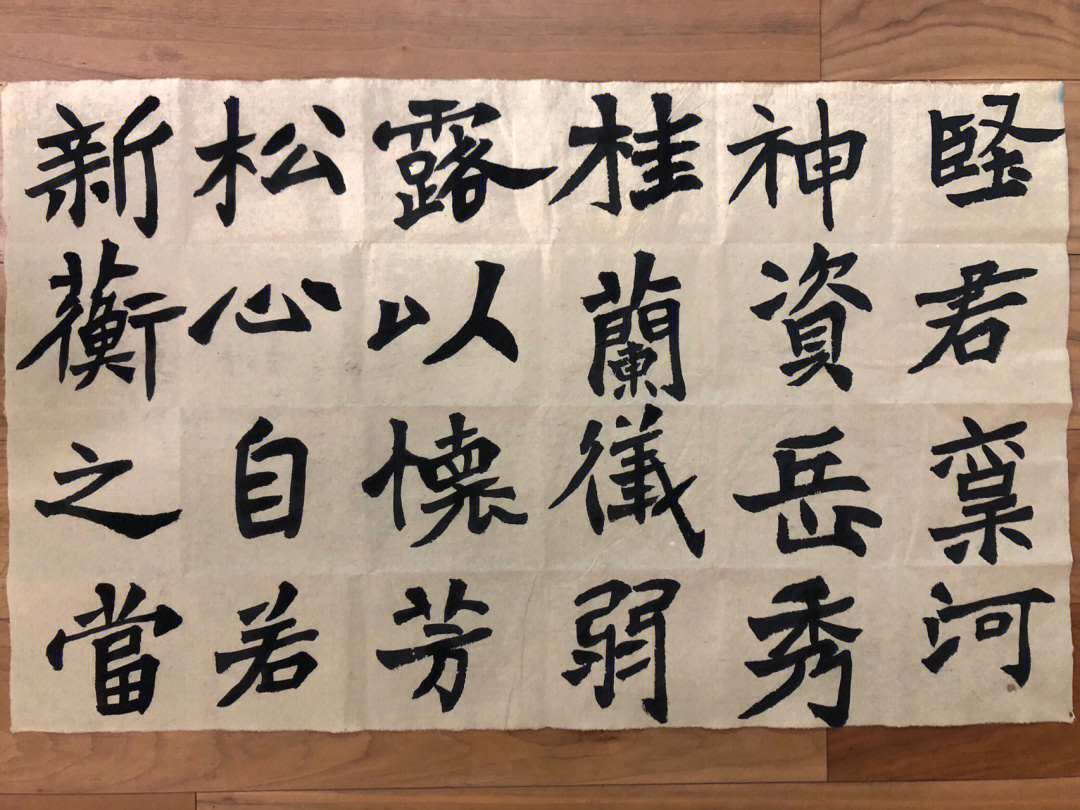 堅君稟河
神資岳秀
桂蘭儀弱
露以懷芳
松心自若
新蘅之當